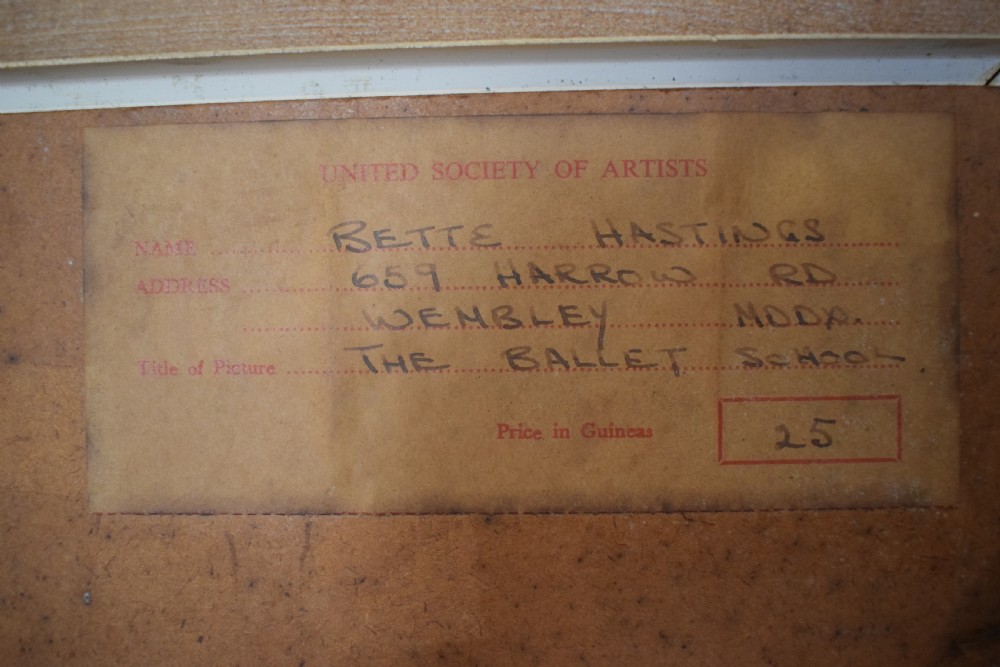 UNITED SOCIETY OF ARTISTS
NAME BETTE HASTINGS
ADDRESS 659 HARROW RD
WEMBLEY MDDX.
Title of Picture THE BALLET SCHOOL
Price in Guineas 25